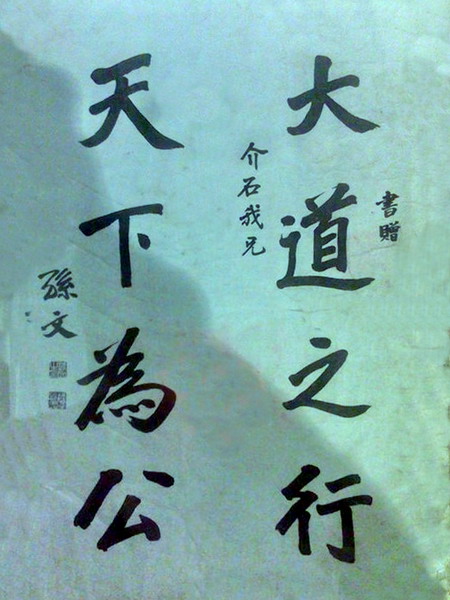 書贈
大道之行
介石我兄
天下為公
孫文